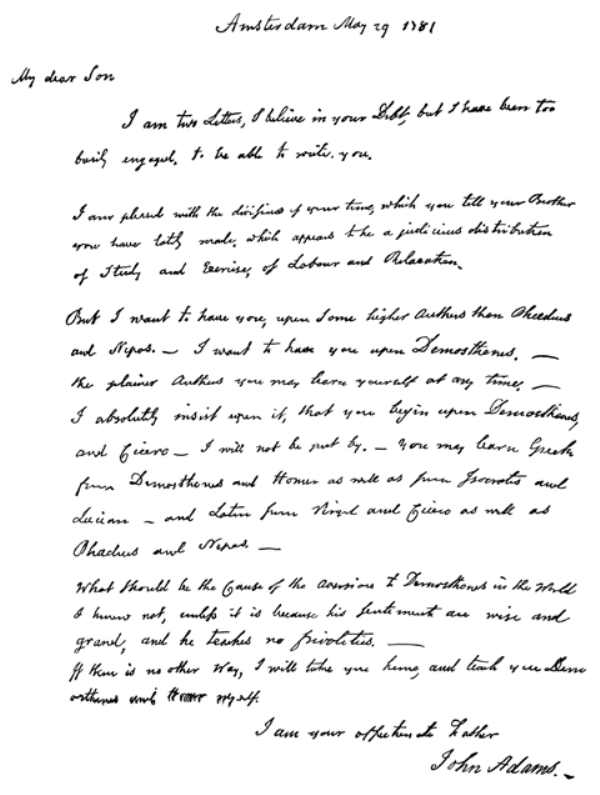 Amsterdam May 29 1781
My dear Son
I am two Letters, I believe in your Debt, but I have been too
busily engaged, to be able to write you.
I am pleased with the divisions of your time, which you tell your Brother
you have lately made, which appears to be a judicious distribution
of Study and Exercise, of Labour and Relaxation.
But I want to have you, upon some higher Authors than Phædrus
and Nepos. — I want to have you upon Demosthenes. —
the plainer Authors you may learn yourself at any time. —
I absolutely insist upon it, that you begin upon Demosthenes,
and Cicero — I will not be put by. — You may learn Greek
from Demosthenes and Homer as well as from Isocrates and
Lucian — and Latin from Virgil and Cicero as well as
Phædrus and Nepos. —
What should be the Cause of the aversion to Demosthenes in the World
I know not, unless it is because his sentiments are wise and
grand, and he teaches no frivolities. —
If there is no other Way, I will take you home, and teach you Demo
sthenes and Homer myself.
I am your affectionate Father
John Adams. —